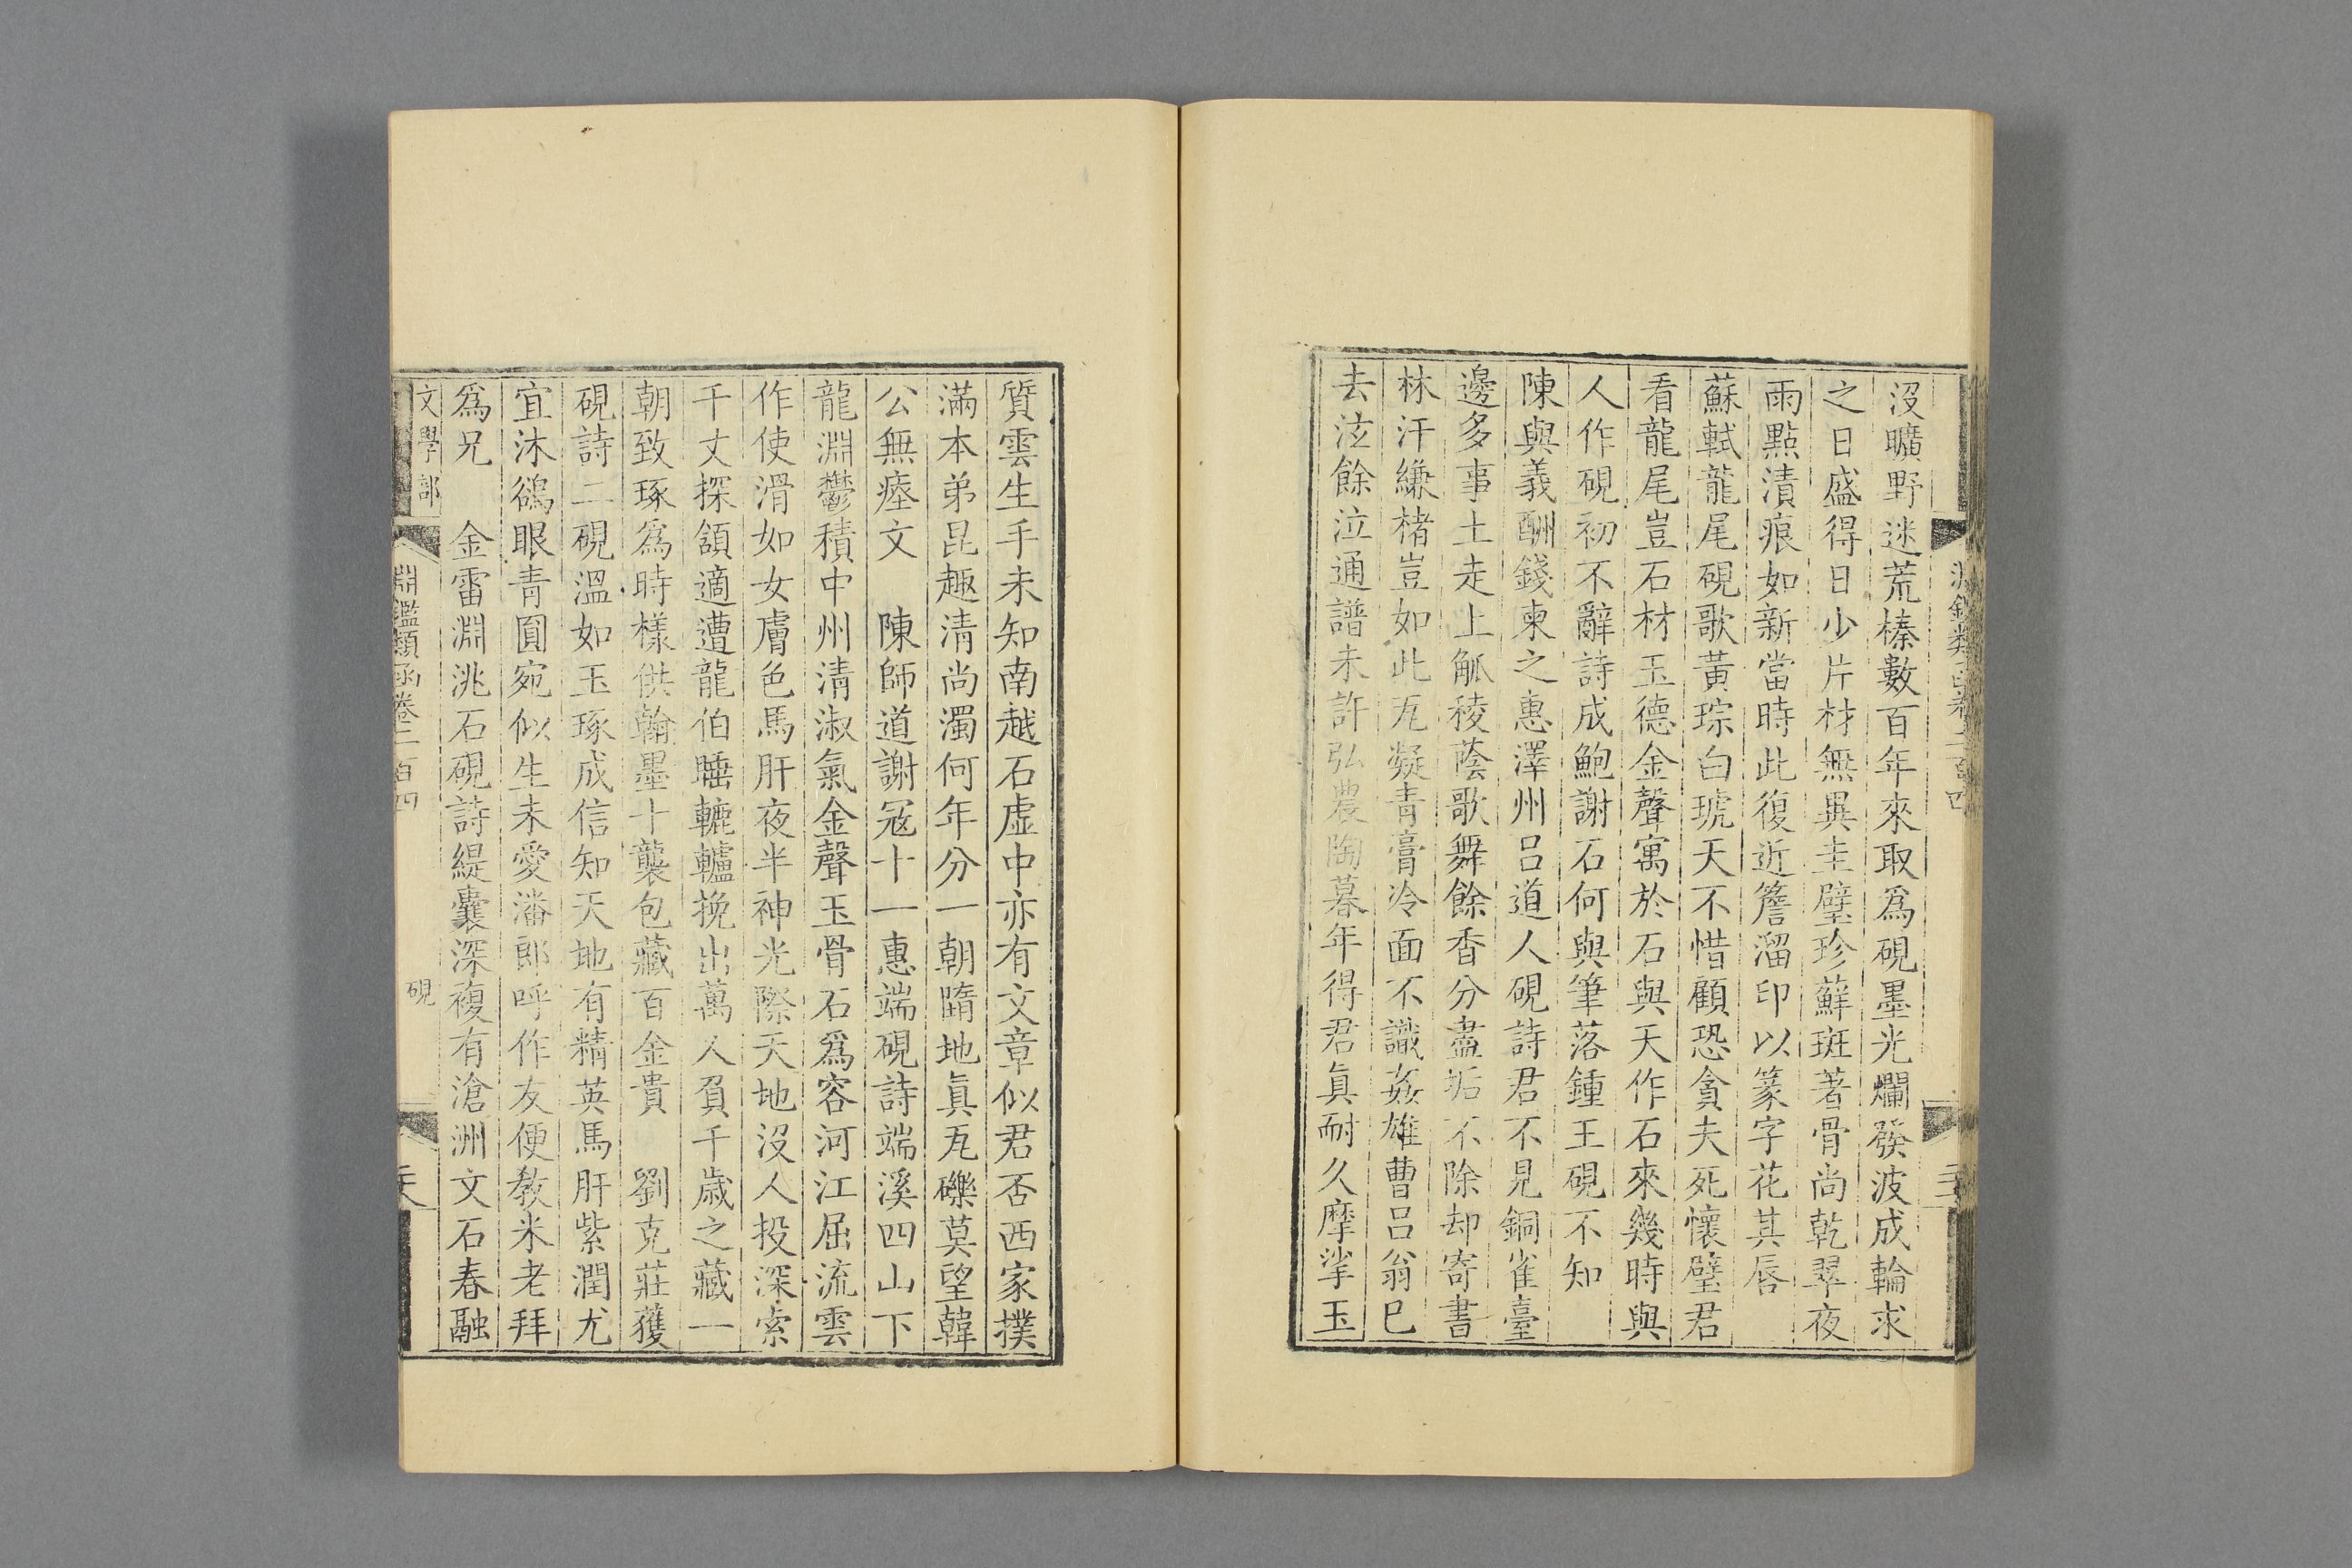 沒曠野迷荒榛數百年來取爲硯墨光爛發波成輪求
之日盛得日少片材無異圭璧珍蘚斑著骨尚乾翠夜
雨點漬痕如新當時此復近簷溜印以篆字花其唇
蘇軾龍尾硯歌黃琮白琥天不惜顧恐貪夫死懷璧君
看龍尾豈石材玉德金聲寓於石與天作石來幾時與
人作硯初不辭詩成鮑謝石何與筆落鍾王硯不知
陳與義酬錢東之惠澤州呂道人硯詩君不見銅雀臺
邊多事土走上觚稜蔭歌舞餘香分盡垢不除却寄書
林汗縑楮豈如此瓦凝青膏冷面不識姦雄曹呂翁已
去泫餘泣通譜未許弘農陶暮年得君真耐久摩挲玉
質雲生手未知南越石虛中亦有文章似君否西家撲
滿本弟昆趣清尚濁何年分一朝隋地眞瓦礫莫望韓
公無瘞文　陳師道謝冦十一惠端硯詩端溪四山下
龍淵鬱積中州清淑氣金聲玉骨石爲容河江屈流雲
作使滑如女膚色馬肝夜半神光際天地沒人投深索
千丈探頷適遭龍伯睡轆轤挽出萬人負千歲之藏一
朝致琢爲時樣供翰墨十襲包藏百金貴　劉克莊獲
硯詩二硯溫如玉琢成信知天地有精英馬肝紫潤尤
宜沐鵒眼青圓宛似生未愛潘郎呼作友便教米老拜
爲兄　金雷淵洮石硯詩緹囊深複有滄洲文石春融
文學部
淵鑑類函卷二百四
硯